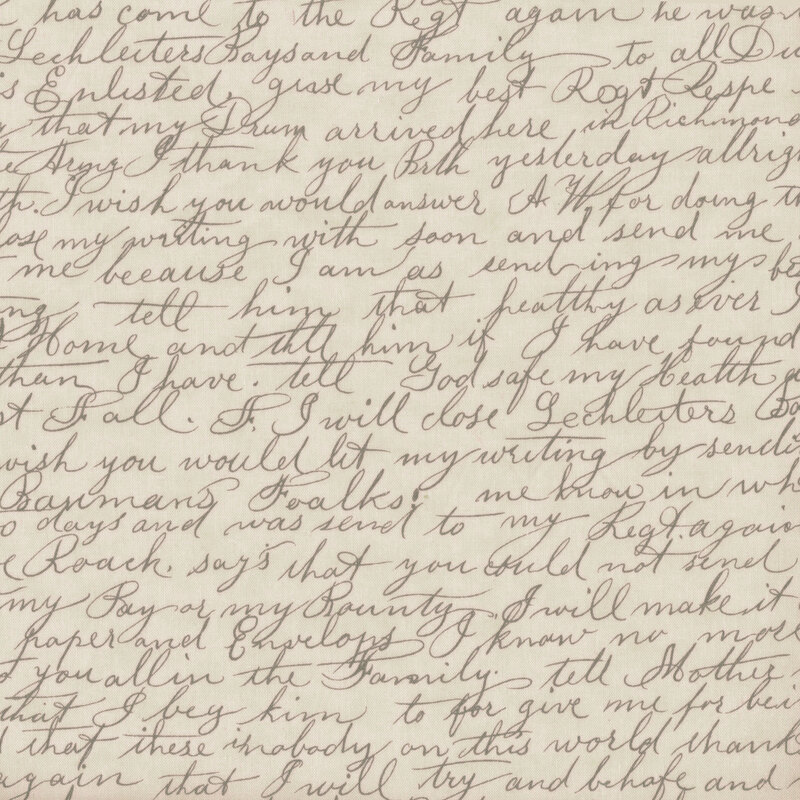 has come to the Regt again he was
Lechleiters Boys and Family to all Du
is Enlisted, give my best Regt Respe
that my Drum arrived here in Richmond
the Army I thank you Brth yesterday allrig
th. I wish you would answer A. W. for doing th
lose my writing with soon and send me
me beecause I am as send ing my be
ng. tell him that healthy as ever I
Home and till him if I have found
than I have. tell God safe my Health a
st Fall. F. I will close Lechleiters Bo
wish you would let my writing by sendi
Baumans Foalks, me know in wh
o days and was send to my Regt. again
e Roach. say's that you could not send
my Pay or my Bounty. I will make it
paper and Envelops I know no more
you all in the Family. tell Mother
that I beg him to for give me for bei
that there is nobody on this world thank
again that I will try and behafe and